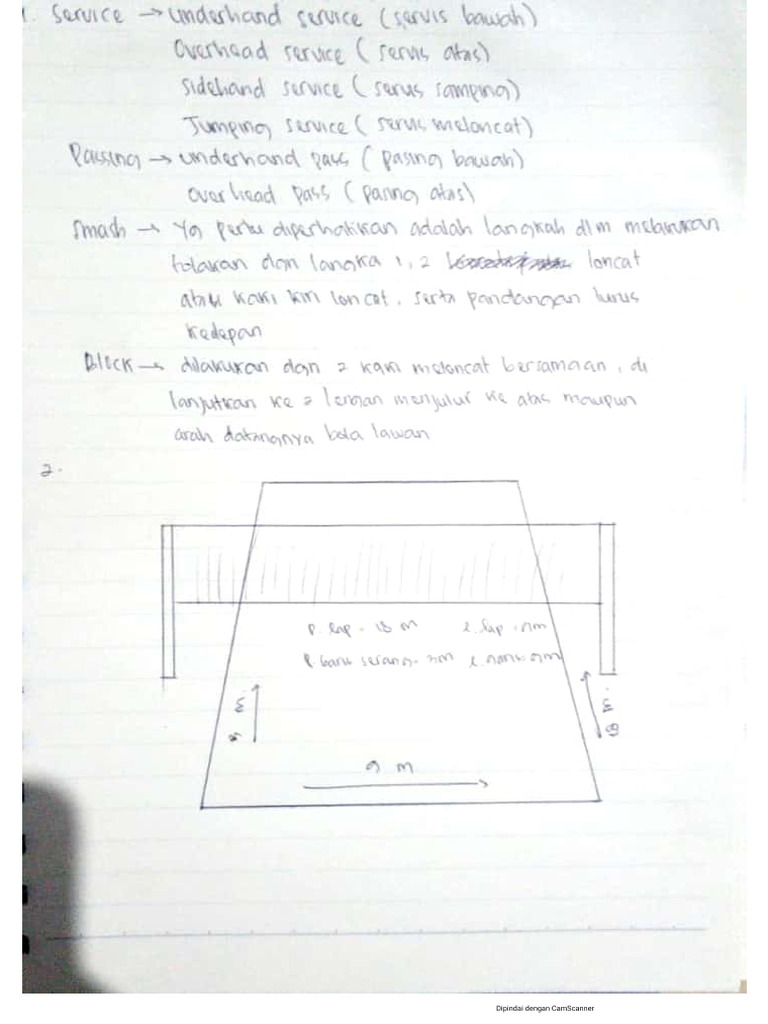 1. Service → Underhand service (servis bawah)
Overhead service (servis atas)
Sidehand service (servis samping)
Jumping service (servis meloncat)
Passing → underhand pass (pasing bawah)
overhead pass (pasing atas)
Smash → Yg perlu diperhatikan adalah langkah dlm melakukan
tolakan dgn langka 1, 2 loncat
kaki kiri loncat, serta pandangan lurus
kedepan
Block → dilakukan dgn 2 kaki meloncat bersamaan, di
lanjutkan ke 2 lengan menjulur ke atas maupun
arah datangnya bola lawan
2.
P. lap = 18 m l. lap = 9m
P. garis serang = 3m l.
m
m
9 m
Dipindai dengan CamScanner